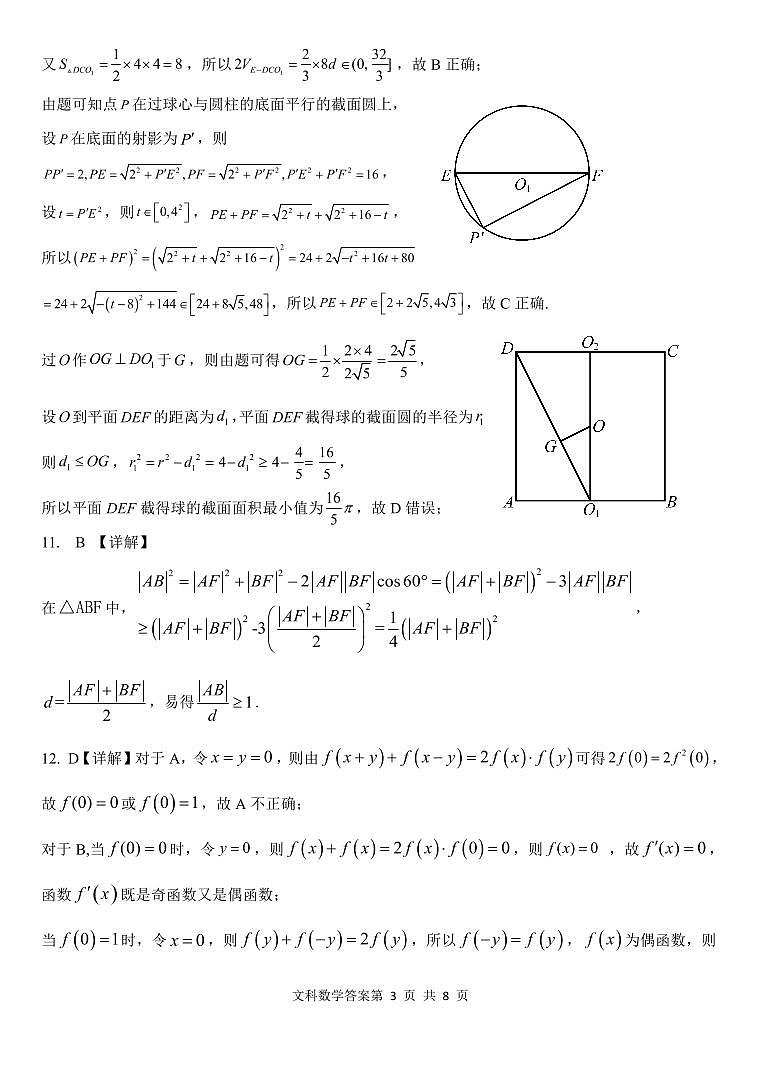 又 $S_{\triangle DCO_1}=\frac{1}{2}\times 4\times 4=8$，所以 $2V_{E-DCO_1}=\frac{2}{3}\times 8d\in(0,\frac{32}{3}]$，故 B 正确；
由题可知点 P 在过球心与圆柱的底面平行的截面圆上，
设 P 在底面的射影为 P′，则
$PP'=2,PE=\sqrt{2^2+P'E^2},PF=\sqrt{2^2+P'F^2},P'E^2+P'F^2=16$，
设 $t=P'E^2$，则 $t\in[0,4^2]$，$PE+PF=\sqrt{2^2+t}+\sqrt{2^2+16-t}$，
所以 $(PE+PF)^2=\left(\sqrt{2^2+t}+\sqrt{2^2+16-t}\right)^2=24+2\sqrt{-t^2+16t+80}$
$=24+2\sqrt{-(t-8)^2+144}\in[24+8\sqrt{5},48]$，所以 $PE+PF\in[2+2\sqrt{5},4\sqrt{3}]$，故 C 正确.
E O₁ F P′
过 O 作 $OG\perp DO_1$ 于 G，则由题可得 $OG=\frac{1}{2}\times\frac{2\times 4}{2\sqrt{5}}=\frac{2\sqrt{5}}{5}$，
设 O 到平面 DEF 的距离为 $d_1$，平面 DEF 截得球的截面圆的半径为 $r_1$
则 $d_1\leq OG$，$r_1^2=r^2-d_1^2=4-d_1^2\geq 4-\frac{4}{5}=\frac{16}{5}$，
所以平面 DEF 截得球的截面面积最小值为 $\frac{16}{5}\pi$，故 D 错误；
D O₂ C
G O
A O₁ B
11. B 【详解】
在 △ABF 中，$|AB|^2=|AF|^2+|BF|^2-2|AF||BF|\cos 60°=(|AF|+|BF|)^2-3|AF||BF|$
$\geq(|AF|+|BF|)^2-3\left(\frac{|AF|+|BF|}{2}\right)^2=\frac{1}{4}(|AF|+|BF|)^2$，
$d=\frac{|AF|+|BF|}{2}$，易得 $\frac{|AB|}{d}\geq 1$.
12. D【详解】对于 A，令 $x=y=0$，则由 $f(x+y)+f(x-y)=2f(x)\cdot f(y)$ 可得 $2f(0)=2f^2(0)$，
故 $f(0)=0$ 或 $f(0)=1$，故 A 不正确；
对于 B,当 $f(0)=0$ 时，令 $y=0$，则 $f(x)+f(x)=2f(x)\cdot f(0)=0$，则 $f(x)=0$ ，故 $f'(x)=0$，
函数 $f'(x)$ 既是奇函数又是偶函数；
当 $f(0)=1$ 时，令 $x=0$，则 $f(y)+f(-y)=2f(y)$，所以 $f(-y)=f(y)$，$f(x)$ 为偶函数，则
文科数学答案第 3 页 共 8 页